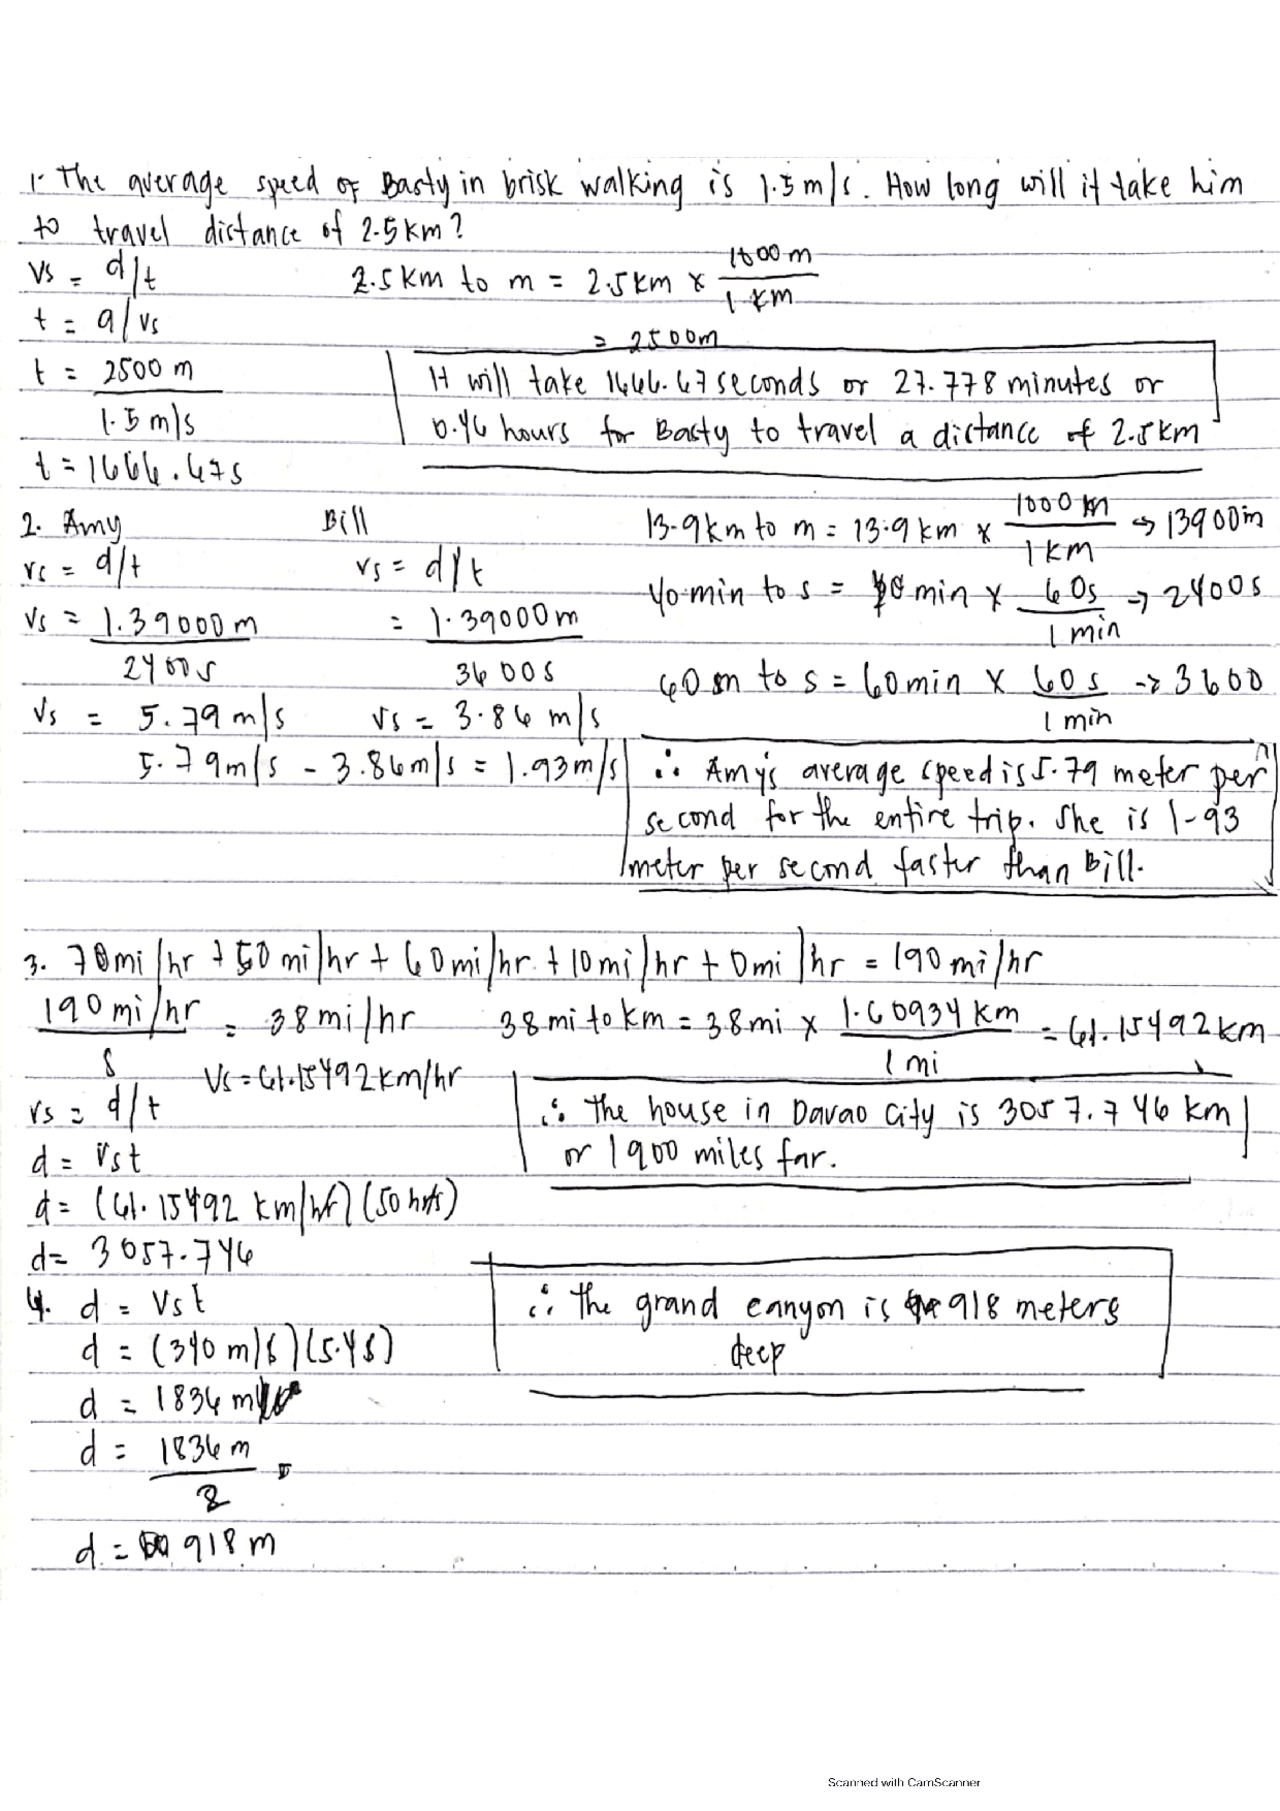 1. The average speed of Basty in brisk walking is 1.5 m/s. How long will it take him
to travel distance of 2.5 km?
vs = d/t
2.5 km to m = 2.5 km x 1000 m / 1 km
t = d/vs
= 2500m
t = 2500 m / 1.5 m/s
It will take 1666.67 seconds or 27.778 minutes or
0.46 hours for Basty to travel a distance of 2.5 km
t = 1666.67s
2. Amy
vs = d/t
vs = 1.39000 m / 2400s
vs = 5.79 m/s
Bill
vs = d/t
= 1.39000 m / 3600s
vs = 3.86 m/s
5.79m/s - 3.86m/s = 1.93m/s
13.9 km to m = 13.9 km x 1000 m / 1 km → 13900m
40 min to s = 40 min x 60s / 1 min → 2400s
60 m to s = 60 min x 60s / 1 min → 3600
∴ Amy's average speed is 5.79 meter per
second for the entire trip. She is 1.93
meter per second faster than Bill.
3. 70mi/hr + 50 mi/hr + 60mi/hr + 10mi/hr + 0mi/hr = 190 mi/hr
190 mi/hr / 5 = 38 mi/hr
38 mi to km = 38 mi x 1.60934 km / 1 mi = 61.15492 km
Vs = 61.15492 km/hr
vs = d/t
d = vst
d = (61.15492 km/hr) (50 hrs)
d = 3057.746
∴ The house in Davao City is 3057.746 km
or 1900 miles far.
4. d = Vst
d = (340 m/s) (5.4s)
d = 1836 m
d = 1836 m / 2
d = 918 m
∴ The grand canyon is 918 meters
deep
Scanned with CamScanner